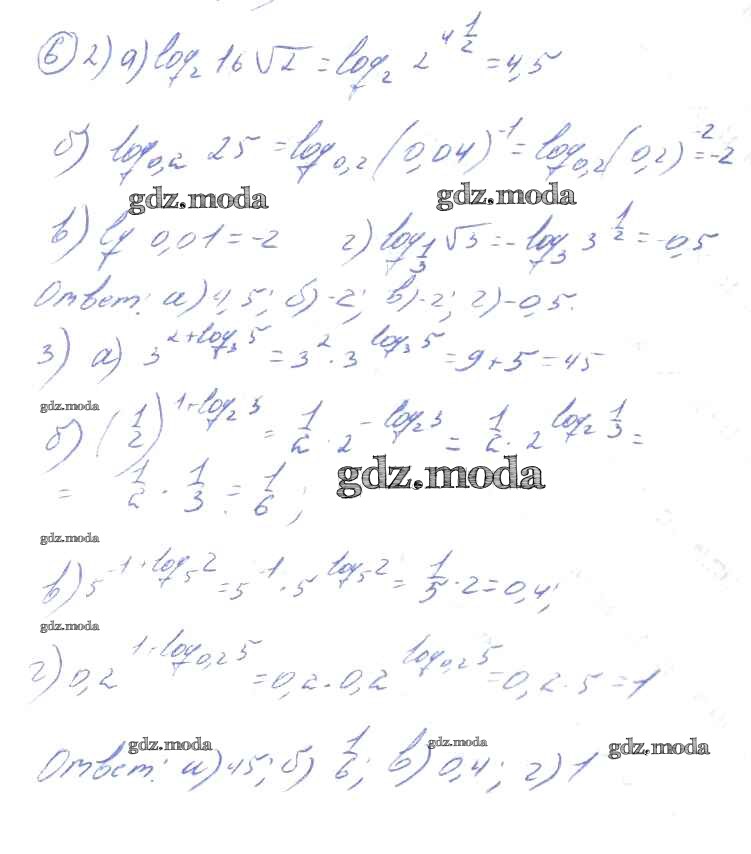 6 2) а) log₂ 16√2 = log₂ 2^(4 1/2) = 4,5
б) log₀,₂ 25 = log₀,₂ (0,04)⁻¹ = log₀,₂ (0,2)⁻² = -2
gdz.moda gdz.moda
в) lg 0,01 = -2 г) log_(1/3) √3 = -log₃ 3^(1/2) = -0,5
Ответ: а) 4,5; б) -2; в) -2; г) -0,5.
3) а) 3^(2+log₃5) = 3² · 3^(log₃5) = 9 + 5 = 45
gdz.moda
б) (1/2)^(1+log₂3) = 1/2 · 2^(-log₂3) = 1/2 · 2^(log₂ 1/3) =
= 1/2 · 1/3 = 1/6;
gdz.moda
gdz.moda
в) 5^(-1+log₅2) = 5⁻¹ · 5^(log₅2) = 1/5 · 2 = 0,4;
gdz.moda
г) 0,2^(1+log₀,₂5) = 0,2 · 0,2^(log₀,₂5) = 0,2 · 5 = 1
gdz.moda gdz.moda gdz.moda
Ответ: а) 45; б) 1/6; в) 0,4; г) 1